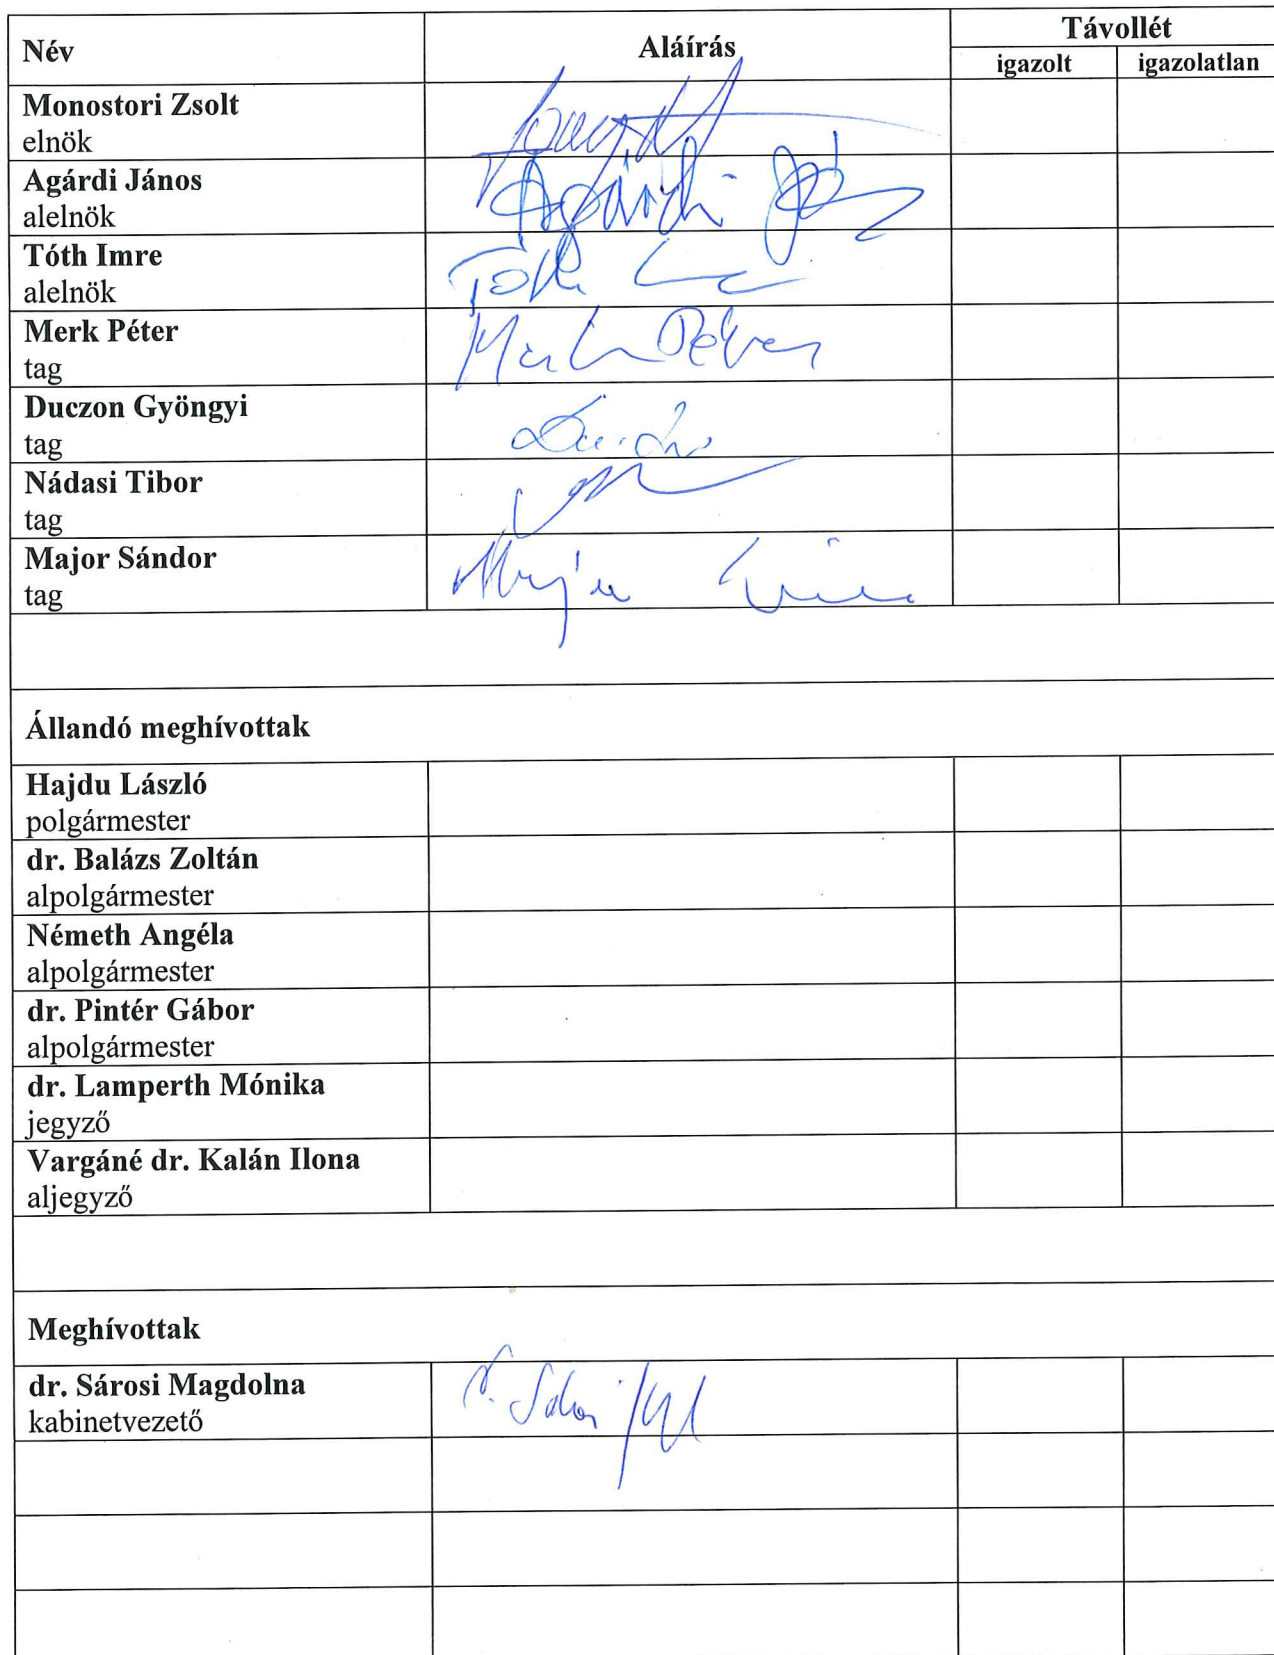 Név Aláírás Távollét
igazolt igazolatlan
Monostori Zsolt
elnök
Agárdi János
alelnök
Agárdi
Tóth Imre
alelnök
Tóth
Merk Péter
tag
Merk Péter
Duczon Gyöngyi
tag
Nádasi Tibor
tag
Major Sándor
tag
Állandó meghívottak
Hajdu László
polgármester
dr. Balázs Zoltán
alpolgármester
Németh Angéla
alpolgármester
dr. Pintér Gábor
alpolgármester
dr. Lamperth Mónika
jegyző
Vargáné dr. Kalán Ilona
aljegyző
Meghívottak
dr. Sárosi Magdolna
kabinetvezető